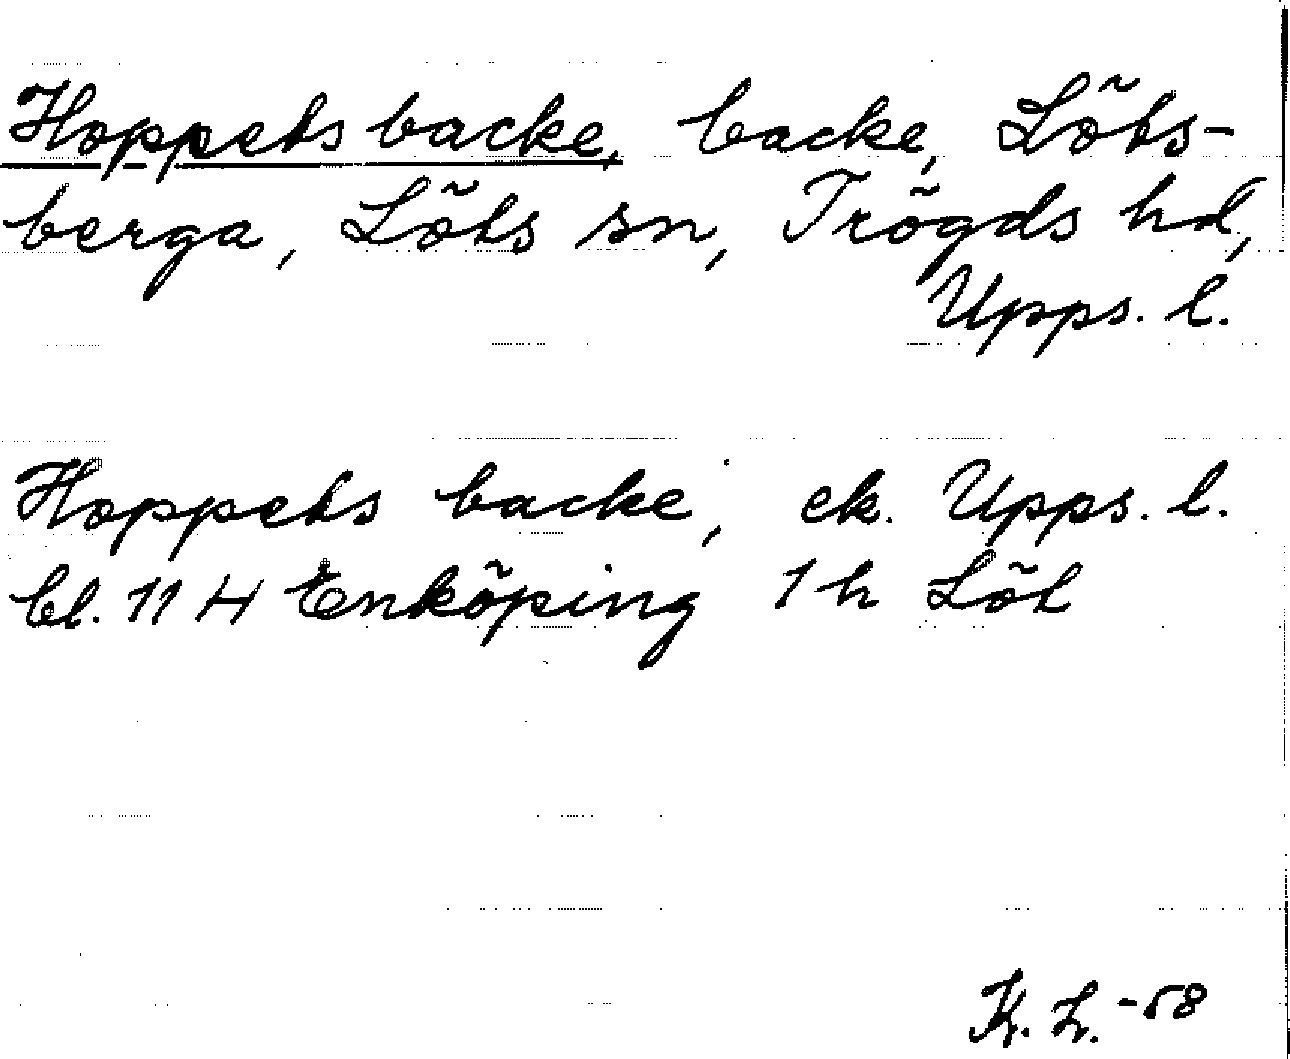 Hoppets backe, backe, Löts-
berga, Löts sn, Trögds hd,
Upps. l.
Hoppets backe, ek. Upps. l.
bl. 11 H Enköping 1 h Löt
K. L. -58